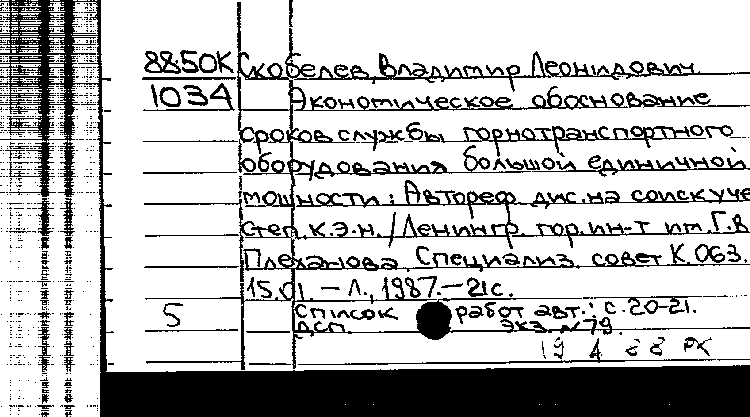 8850К Скобелев, Владимир Леонидович.
1034 Экономическое обоснование
сроков службы горнотранспортного
оборудования большой единичной
мощности: Автореф. дис. на соиск уче
степ. к.э.н. / Ленингр. гор. ин-т им. Г.В
Плеханова. Специализ. совет К.063.
15.01. – Л., 1987. – 21с.
5 Список работ авт.: с. 20-21.
ДСП. Экз. №79.